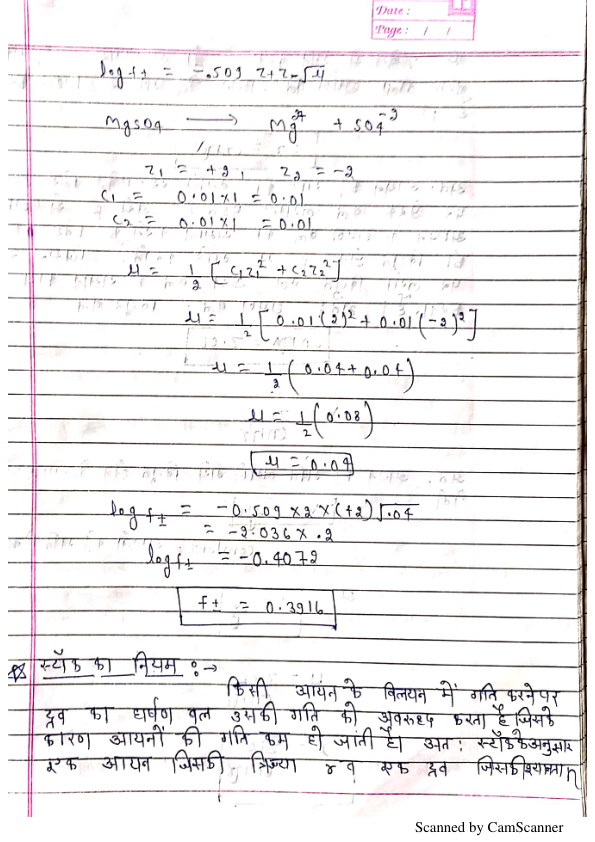 Date :
Page : / /
log f± = -.509 z+z-√μ
MgSO4 ⟶ Mg²⁺ + SO4⁻²
z1 = +2, z2 = -2
C1 = 0.01×1 = 0.01
C2 = 0.01×1 = 0.01
μ = 1/2 [C1z1² + C2z2²]
μ = 1/2 [0.01(2)² + 0.01(-2)²]
μ = 1/2 (0.04+0.04)
μ = 1/2 (0.08)
μ = 0.04
log f± = -0.509 ×2×(+2)√.04
= -2.036 × .2
log f± = -0.4072
f± = 0.3916
स्टॉक का नियम :→
किसी आयन के विलयन में गति करने पर
द्रव का घर्षण बल उसकी गति को अवरुध्द करता है जिसके
कारण आयनों की गति कम हो जाती है। अत: स्टॉक के अनुसार
एक आयन जिसकी त्रिज्या r व एक द्रव जिसकी श्यानता η
Scanned by CamScanner